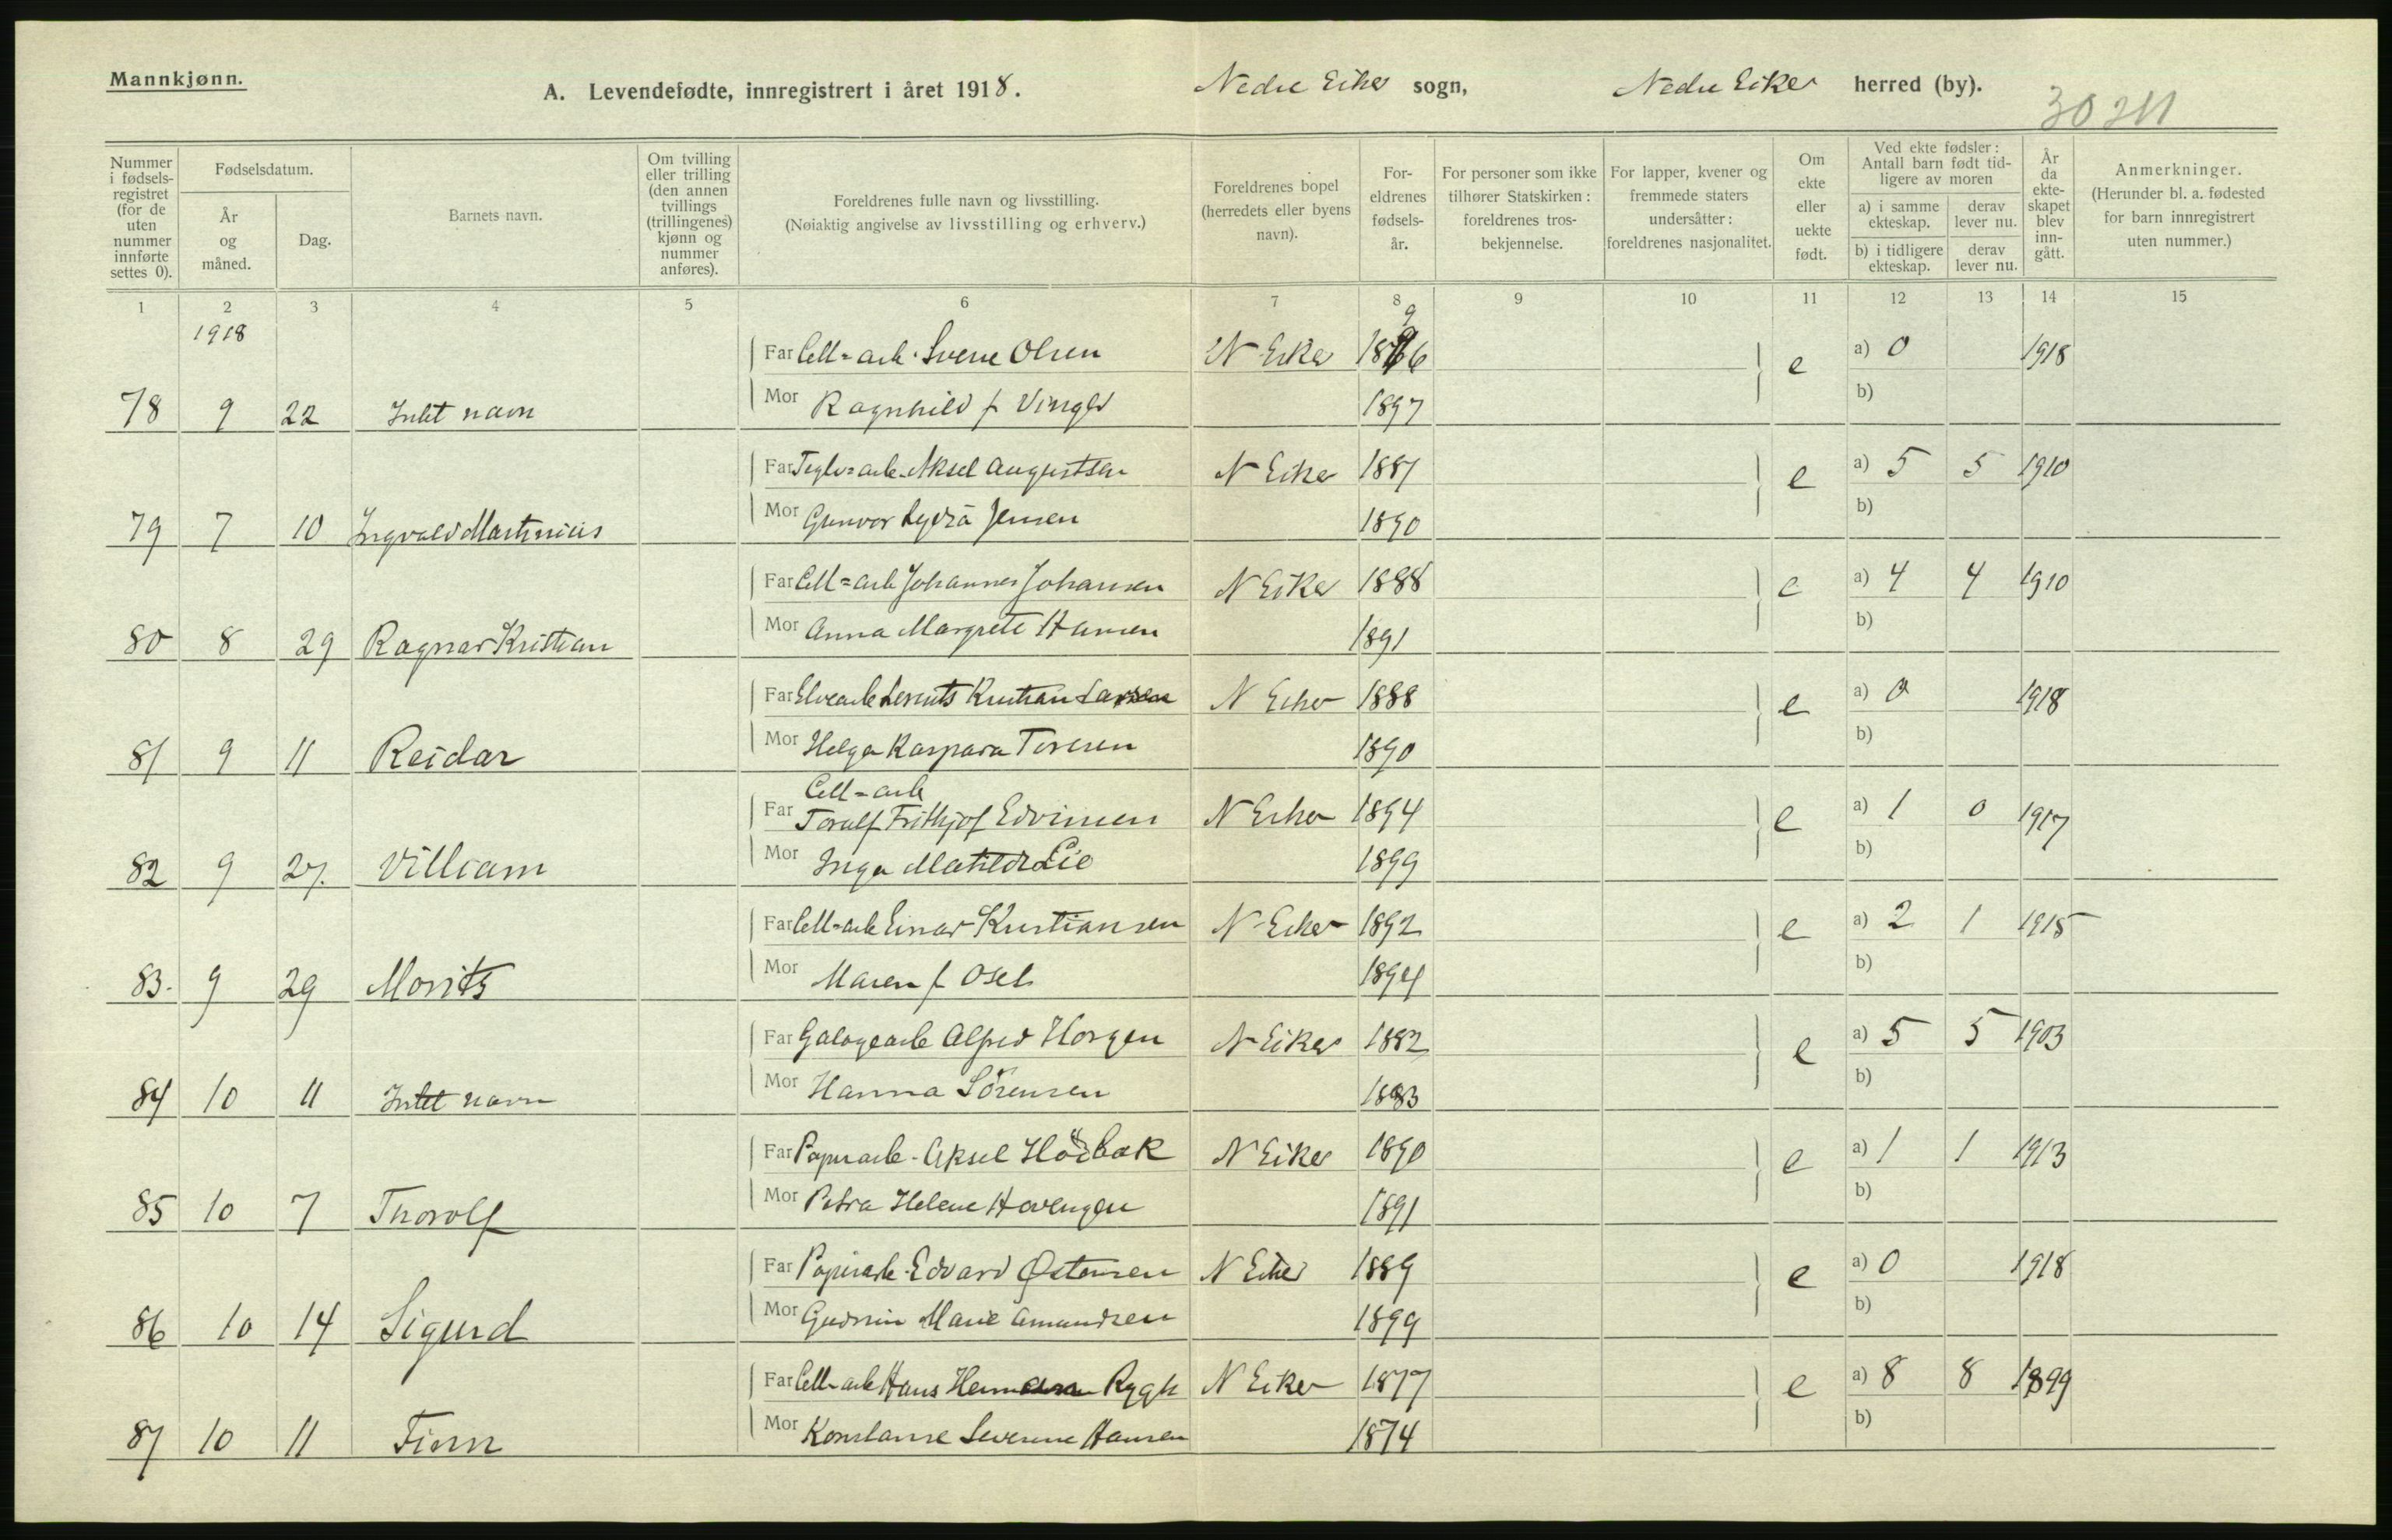 Mannkjønn.
A. Levendefødte, innregistrert i året 1918.
Nedre Eiker sogn,
Nedre Eiker herred (by).
30211
Nummer i fødselsregistret (for de uten nummer innførte settes 0).
Fødselsdatum.
År og måned.
Dag.
Barnets navn.
Om tvilling eller trilling (den annen tvillings (trillingenes) kjønn og nummer anføres).
Foreldrenes fulle navn og livsstilling.
(Nøiaktig angivelse av livsstilling og erhverv.)
Foreldrenes bopel (herredets eller byens navn).
Foreldrenes fødselsår.
For personer som ikke tilhører Statskirken: foreldrenes trosbekjennelse.
For lapper, kvener og fremmede staters undersåtter: foreldrenes nasjonalitet.
Om ekte eller uekte født.
Ved ekte fødsler: Antall barn født tidligere av moren
a) i samme ekteskap.
derav lever nu.
b) i tidligere ekteskap.
derav lever nu.
År da ekteskapet blev inngått.
Anmerkninger.
(Herunder bl. a. fødested for barn innregistrert uten nummer.)
1 2 3 4 5 6 7 8 9 10 11 12 13 14 15
1918
Far Cell=arb. Sverre Olsen N Eiker 1896 e a) 0 1918
Mor Ragnhild f Vinger 1897 b)
78 9 22 Intet navn
Far Teglv=arb. Aksel Augustsen N Eiker 1887 e a) 5 5 1910
Mor Gunvor Lydia Jensen 1890 b)
79 7 10 Ingvald Martinius
Far Cell=arb Johannes Johansen N Eiker 1888 e a) 4 4 1910
Mor Anna Margrete Hansen 1891 b)
80 8 29 Ragnar Kristian
Far Elvearb Lorents Kristian Larsen N Eiker 1888 e a) 0 1918
Mor Helga Kaspara Toresen 1890 b)
81 9 11 Reidar
Cell=arb
Far Toralf Frithjof Edvinsen N Eiker 1894 e a) 1 0 1917
Mor Inga Matilde Lie 1899 b)
82 9 27. Villiam
Far Cell=arb Einar Kristiansen N Eiker 1892 e a) 2 1 1915
Mor Maren f Oseb 1894 b)
83. 9 29 Morits
Far Galogearb Alfred Horgen N Eiker 1882 e a) 5 5 1903
Mor Hanna Sörensen 1883 b)
84 10 11 Intet navn
Far Papirarb. Aksel Höibak N Eiker 1890 e a) 1 1 1913
Mor Petra Helene Hovengen 1891 b)
85 10 7 Thorolf
Far Papirarb. Edvard Østensen N Eiker 1889 e a) 0 1918
Mor Gudrun Marie Amundsen 1899 b)
86 10 14 Sigurd
Far Cell=arb Hans Hermann Rygh N Eiker 1877 e a) 8 8 1899
Mor Konstanse Severine Hansen 1874 b)
87 10 11 Finn